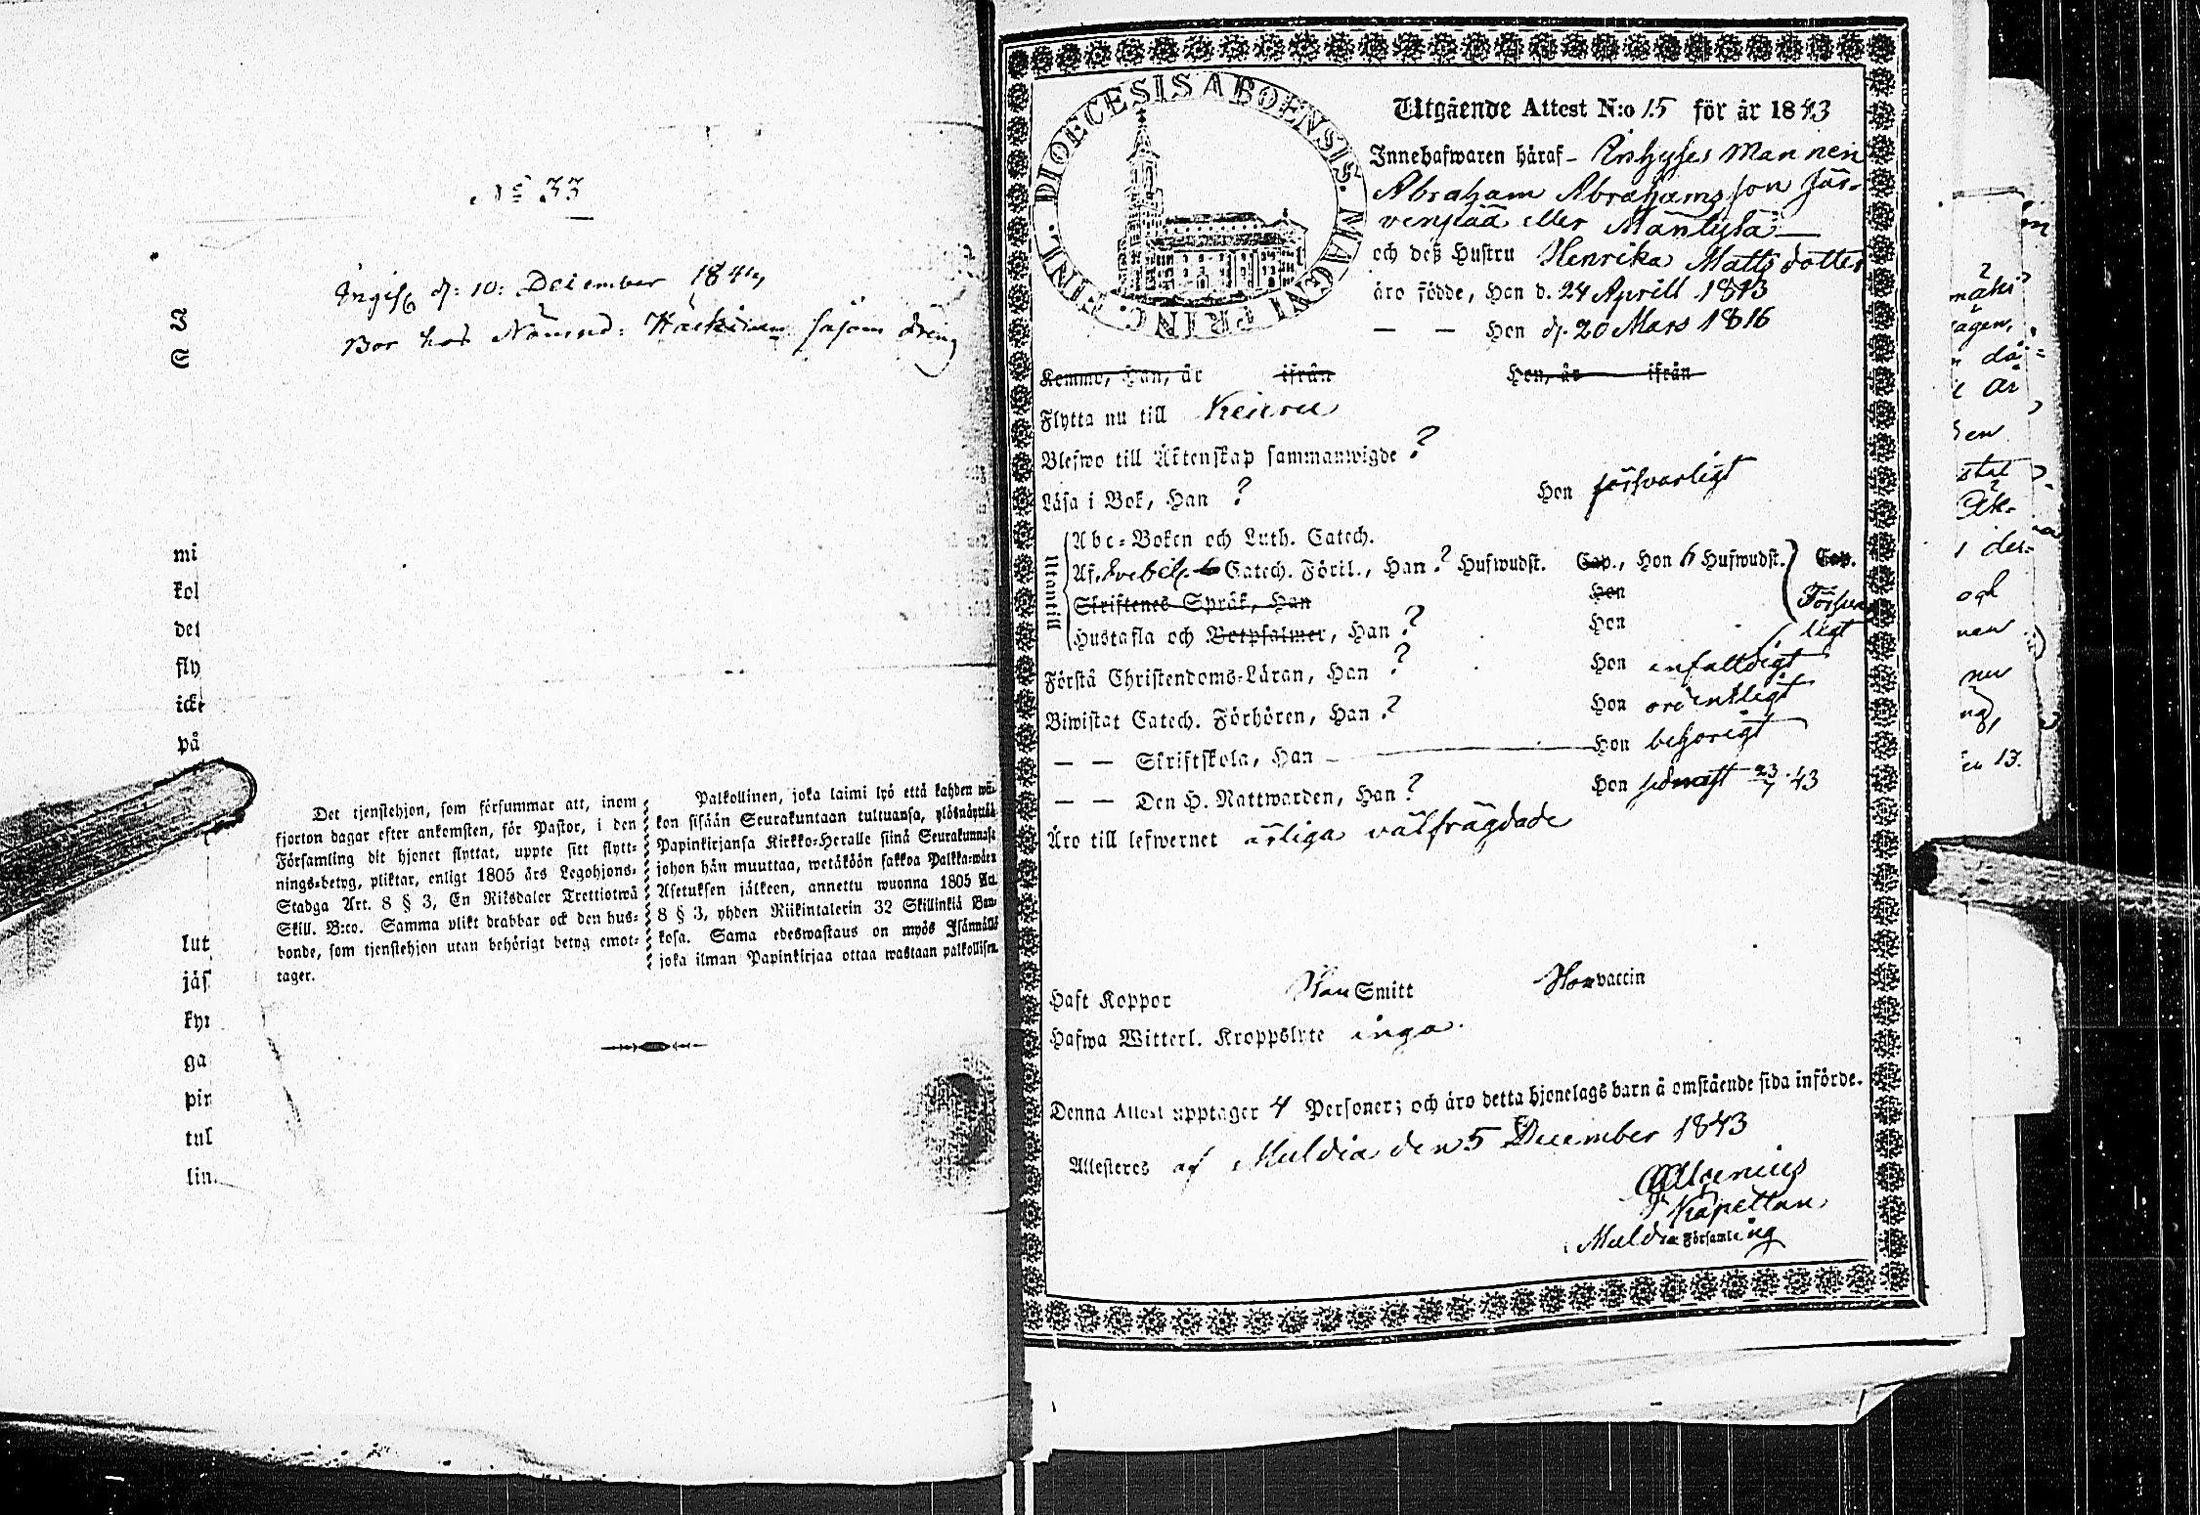 No 33
Ingifv d: 10: December 184
Bor hos Nämnd: såsom dräng
I
S
mi
kol
det
fly
icke
på
lut
jäs
kyr
ga
pir
tul
lin
Det tjenstehjon, som försummar att, inom
fjorton dagar efter ankomsten, för Pastor, i den
Församling dit hjonet flyttat, uppte sitt flytt-
nings-betyg, pliktar, enligt 1805 års Legohjons-
Stadga Art. 8 § 3, En Riksdaler Trettiotwå
Skill. B:co. Samma plikt drabbar ock den hus-
bonde, som tjenstehjon utan behörigt betyg emot-
tager.
Palkollinen, joka laimi lyö että kahden wii-
kon sisään Seurakuntaan tultuansa, ylösnäyttää
Papinkirjansa Kirkko-Herralle siinä Seurakunnasa
johon hän muuttaa, wetäköön sakkoa Palkka-wäen
Asetuksen jälkeen, annettu wuonna 1805 Ar.
8 § 3, yhden Riikintalerin 32 Skillinkiä Ban-
kosa. Sama edeswastaus on myös Isännällä
joka ilman Papinkirjaa ottaa wastaan palkollisen.
DIOECESIS ABOENSIS. MAGNI PRINC. FINL.
Utgående Attest N:o 15 för år 1843
Innehafwaren häraf Inhyses Mannen
Abraham Abrahamsson Jär-
venpää eller Mäntylä
och deß Hustru Henrika Mattsdotter
äro födde, Han d. 24 Aprill 1813
— — Hon d. 20 Mars 1816
Komme, Han, år ifrån Hon, år ifrån
Flytta nu till Keuru
Blefwo till Äktenskap sammanwigde ?
Läsa i Bok, Han ? Hon försvarligt
Utantill
Abc-Boken och Luth. Catech.
Af. Svebel. Catech. Förkl., Han ? Hufwudst. Cap., Hon 6 Hufwudst. Cap.
Skriftenes Språk, Han Hon Försvar
Hustafla och Botpsalmer, Han ? Hon ligt
Förstå Christendoms-Läran, Han ? Hon enfaldigt
Biwistat Catech. Förhören, Han ? Hon ordentligt
— — Skriftskola, Han — Hon behörigt
— — Den H. Nattwarden, Han ? Hon sednast 23/7 43
Äro till lefwernet ärliga välfrägdade
Haft Koppor Han Smitt Hon vaccin
Hafwa Witterl. Kroppslyte inga.
Denna Attest upptager 4 Personer; och äro detta hjonelags barn å omstående sida införde.
Attesteres af Muldia den 5 December 1843
Kapellan
i Muldia Församling